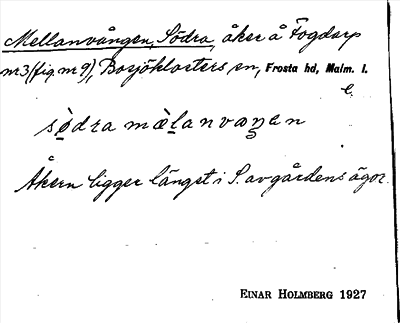 Mellanvången, Södra, åker å Fogdarp
nr 3 (fig. nr 9), Bosjöklosters sn, Frosta hd, Malm. l.
södra mælanvaŋen
Åkern ligger längst i S. av gårdens ägor.
EINAR HOLMBERG 1927